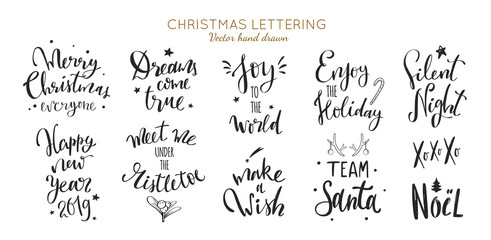 CHRISTMAS LETTERING
Vector hand drawn
Merry
Christmas
everyone
Dreams
come
true
Joy
TO THE
World
Enjoy
THE
Holiday
Silent
Night
Happy
new
Year
2019
Meet me
UNDER
THE
Mistletoe
make
a
Wish
TEAM
Santa
XoXoXo
NOËL